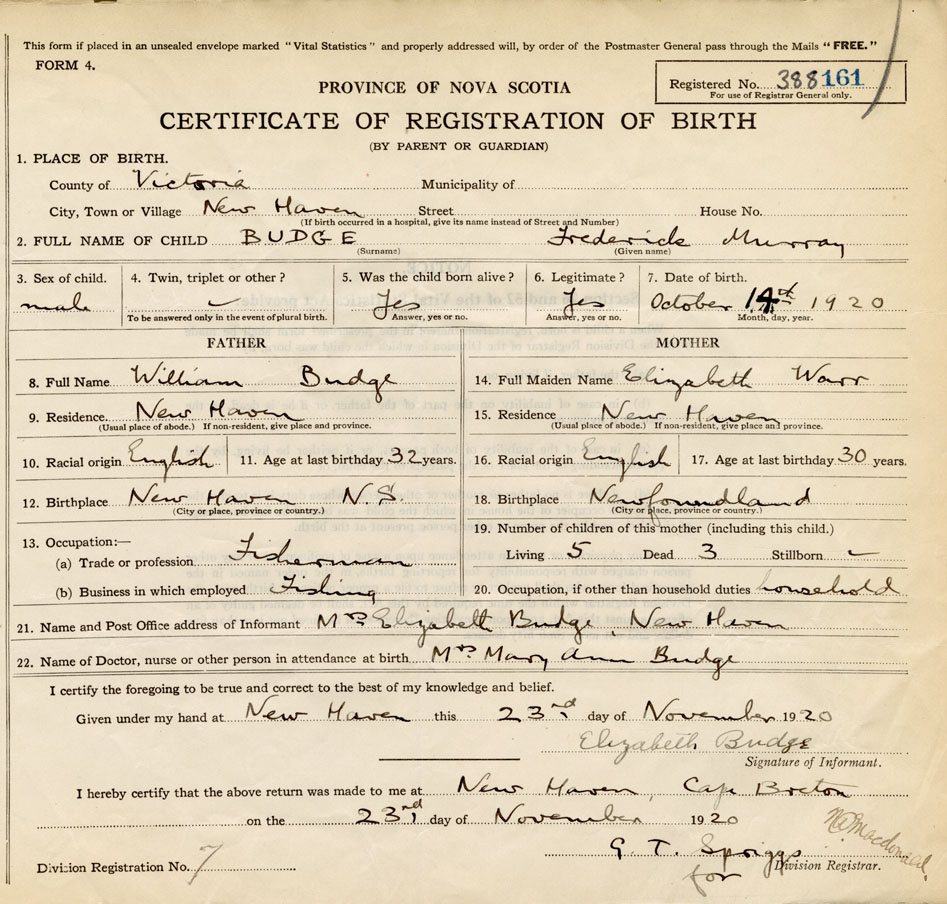 This form if placed in an unsealed envelope marked "Vital Statistics" and properly addressed will, by order of the Postmaster General pass through the Mails "FREE."
FORM 4.
Registered No. 388161
For use of Registrar General only.
PROVINCE OF NOVA SCOTIA
CERTIFICATE OF REGISTRATION OF BIRTH
(BY PARENT OR GUARDIAN)
1. PLACE OF BIRTH.
County of Victoria Municipality of
City, Town or Village New Haven Street House No.
(If birth occurred in a hospital, give its name instead of Street and Number)
2. FULL NAME OF CHILD BUDGE Frederick Murray
(Surname) (Given name)
3. Sex of child. 4. Twin, triplet or other? 5. Was the child born alive? 6. Legitimate? 7. Date of birth.
male — Yes Yes October 14th 1920
To be answered only in the event of plural birth. Answer, yes or no. Answer, yes or no. Month, day, year.
FATHER MOTHER
8. Full Name William Budge 14. Full Maiden Name Elizabeth Warr
9. Residence New Haven 15. Residence New Haven
(Usual place of abode.) If non-resident, give place and province. (Usual place of abode.) If non-resident, give place and province.
10. Racial origin English 11. Age at last birthday 32 years. 16. Racial origin English 17. Age at last birthday 30 years.
12. Birthplace New Haven N.S. 18. Birthplace Newfoundland
(City or place, province or country.) (City or place, province or country.)
13. Occupation:— 19. Number of children of this mother (including this child.)
(a) Trade or profession Fisherman Living 5 Dead 3 Stillborn —
(b) Business in which employed Fishing 20. Occupation, if other than household duties household
21. Name and Post Office address of Informant Mrs Elizabeth Budge, New Haven
22. Name of Doctor, nurse or other person in attendance at birth Mrs Mary Ann Budge
I certify the foregoing to be true and correct to the best of my knowledge and belief.
Given under my hand at New Haven this 23rd day of November 1920
Elizabeth Budge
Signature of Informant.
I hereby certify that the above return was made to me at New Haven, Cape Breton
on the 23rd day of November 1920
G. T. Spriggs
Division Registration No. 7 for Division Registrar.
Macdonald